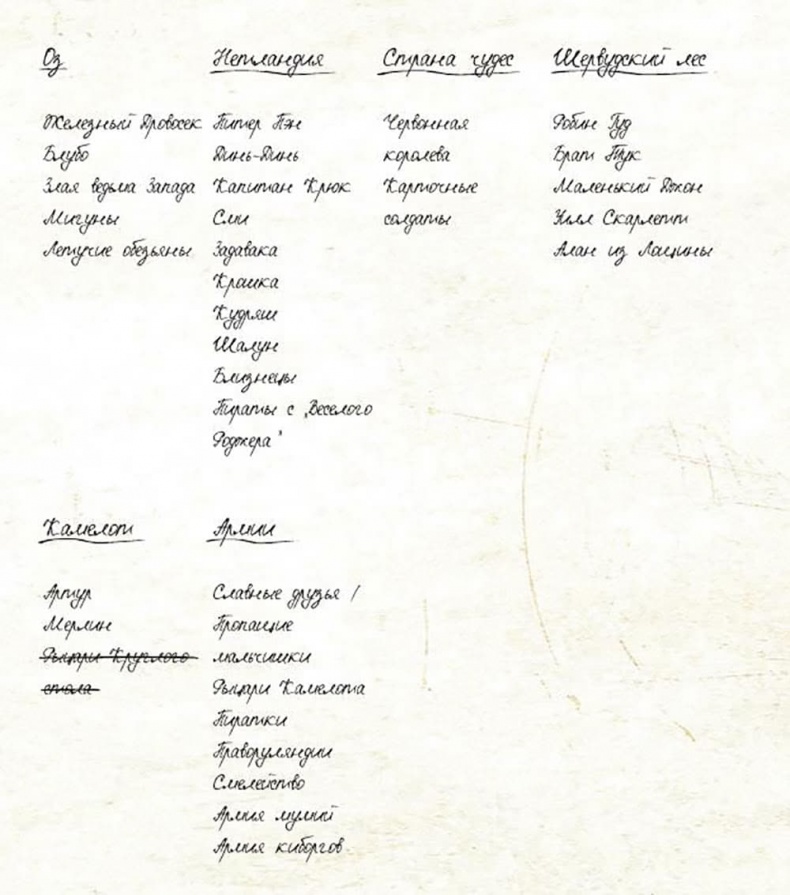 Оз
Железный Дровосек
Блубо
Злая ведьма Запада
Мигуны
Летучие обезьяны
Нетландия
Питер Пэн
Динь-Динь
Капитан Крюк
Сми
Задавака
Крошка
Кудряш
Шалун
Близнецы
Пираты с „Веселого
Роджера"
Страна чудес
Червонная
королева
Карточные
солдаты
Шервудский лес
Робин Гуд
Брат Тук
Маленький Джон
Уилл Скарлетт
Алан из Лощины
Камелот
Артур
Мерлин
Рыцари Круглого
стола
Армии
Славные друзья /
Пропащие
мальчишки
Рыцари Камелота
Пиратки
Праворуляндии
Смелейство
Армия мумий
Армия киборгов